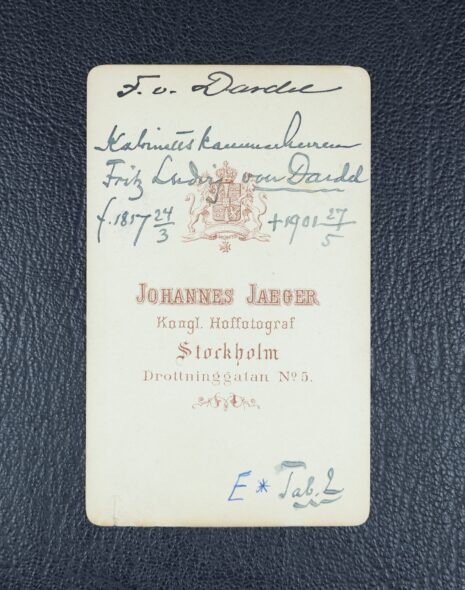 F. v. Dardel
Kabinettskammarherren
Fritz Ludvig von Dardel
f. 1817 24/3 † 1901 27/5
JOHANNES JAEGER
Kongl. Hoffotograf
Stockholm
Drottninggatan No 5.
E * Tab. 2